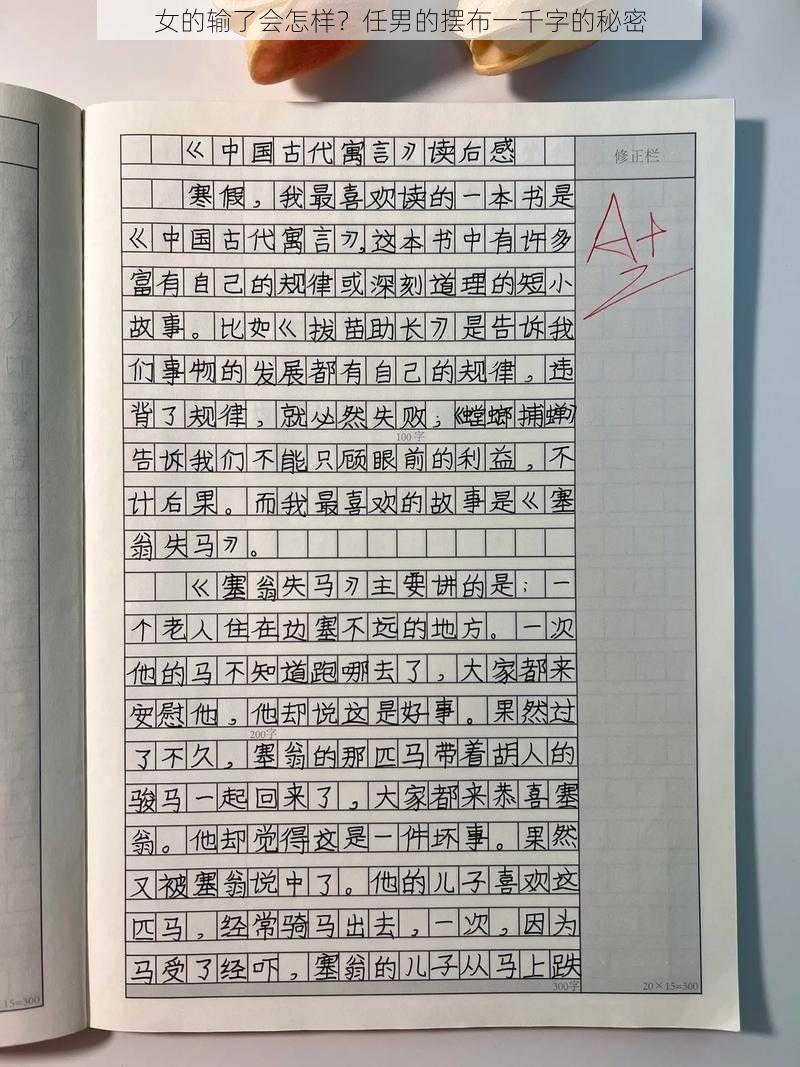 女的输了会怎样？任男的摆布一千字的秘密
《中国古代寓言》读后感
修正栏
寒假，我最喜欢读的一本书是
《中国古代寓言》，这本书中有许多
富有自己的规律或深刻道理的短小
故事。比如《拔苗助长》是告诉我
们事物的发展都有自己的规律，违
背了规律，就必然失败；《螳螂捕蝉》
100字
告诉我们不能只顾眼前的利益，不
计后果。而我最喜欢的故事是《塞
翁失马》。
《塞翁失马》主要讲的是：一
个老人住在边塞不远的地方。一次
他的马不知道跑哪去了，大家都来
安慰他，他却说这是好事。果然过
200字
了不久，塞翁的那匹马带着胡人的
骏马一起回来了，大家都来恭喜塞
翁。他却觉得这是一件坏事。果然
又被塞翁说中了。他的儿子喜欢这
匹马，经常骑马出去，一次，因为
马受了经吓，塞翁的儿子从马上跌
300字
20×15=300
A+
15=300